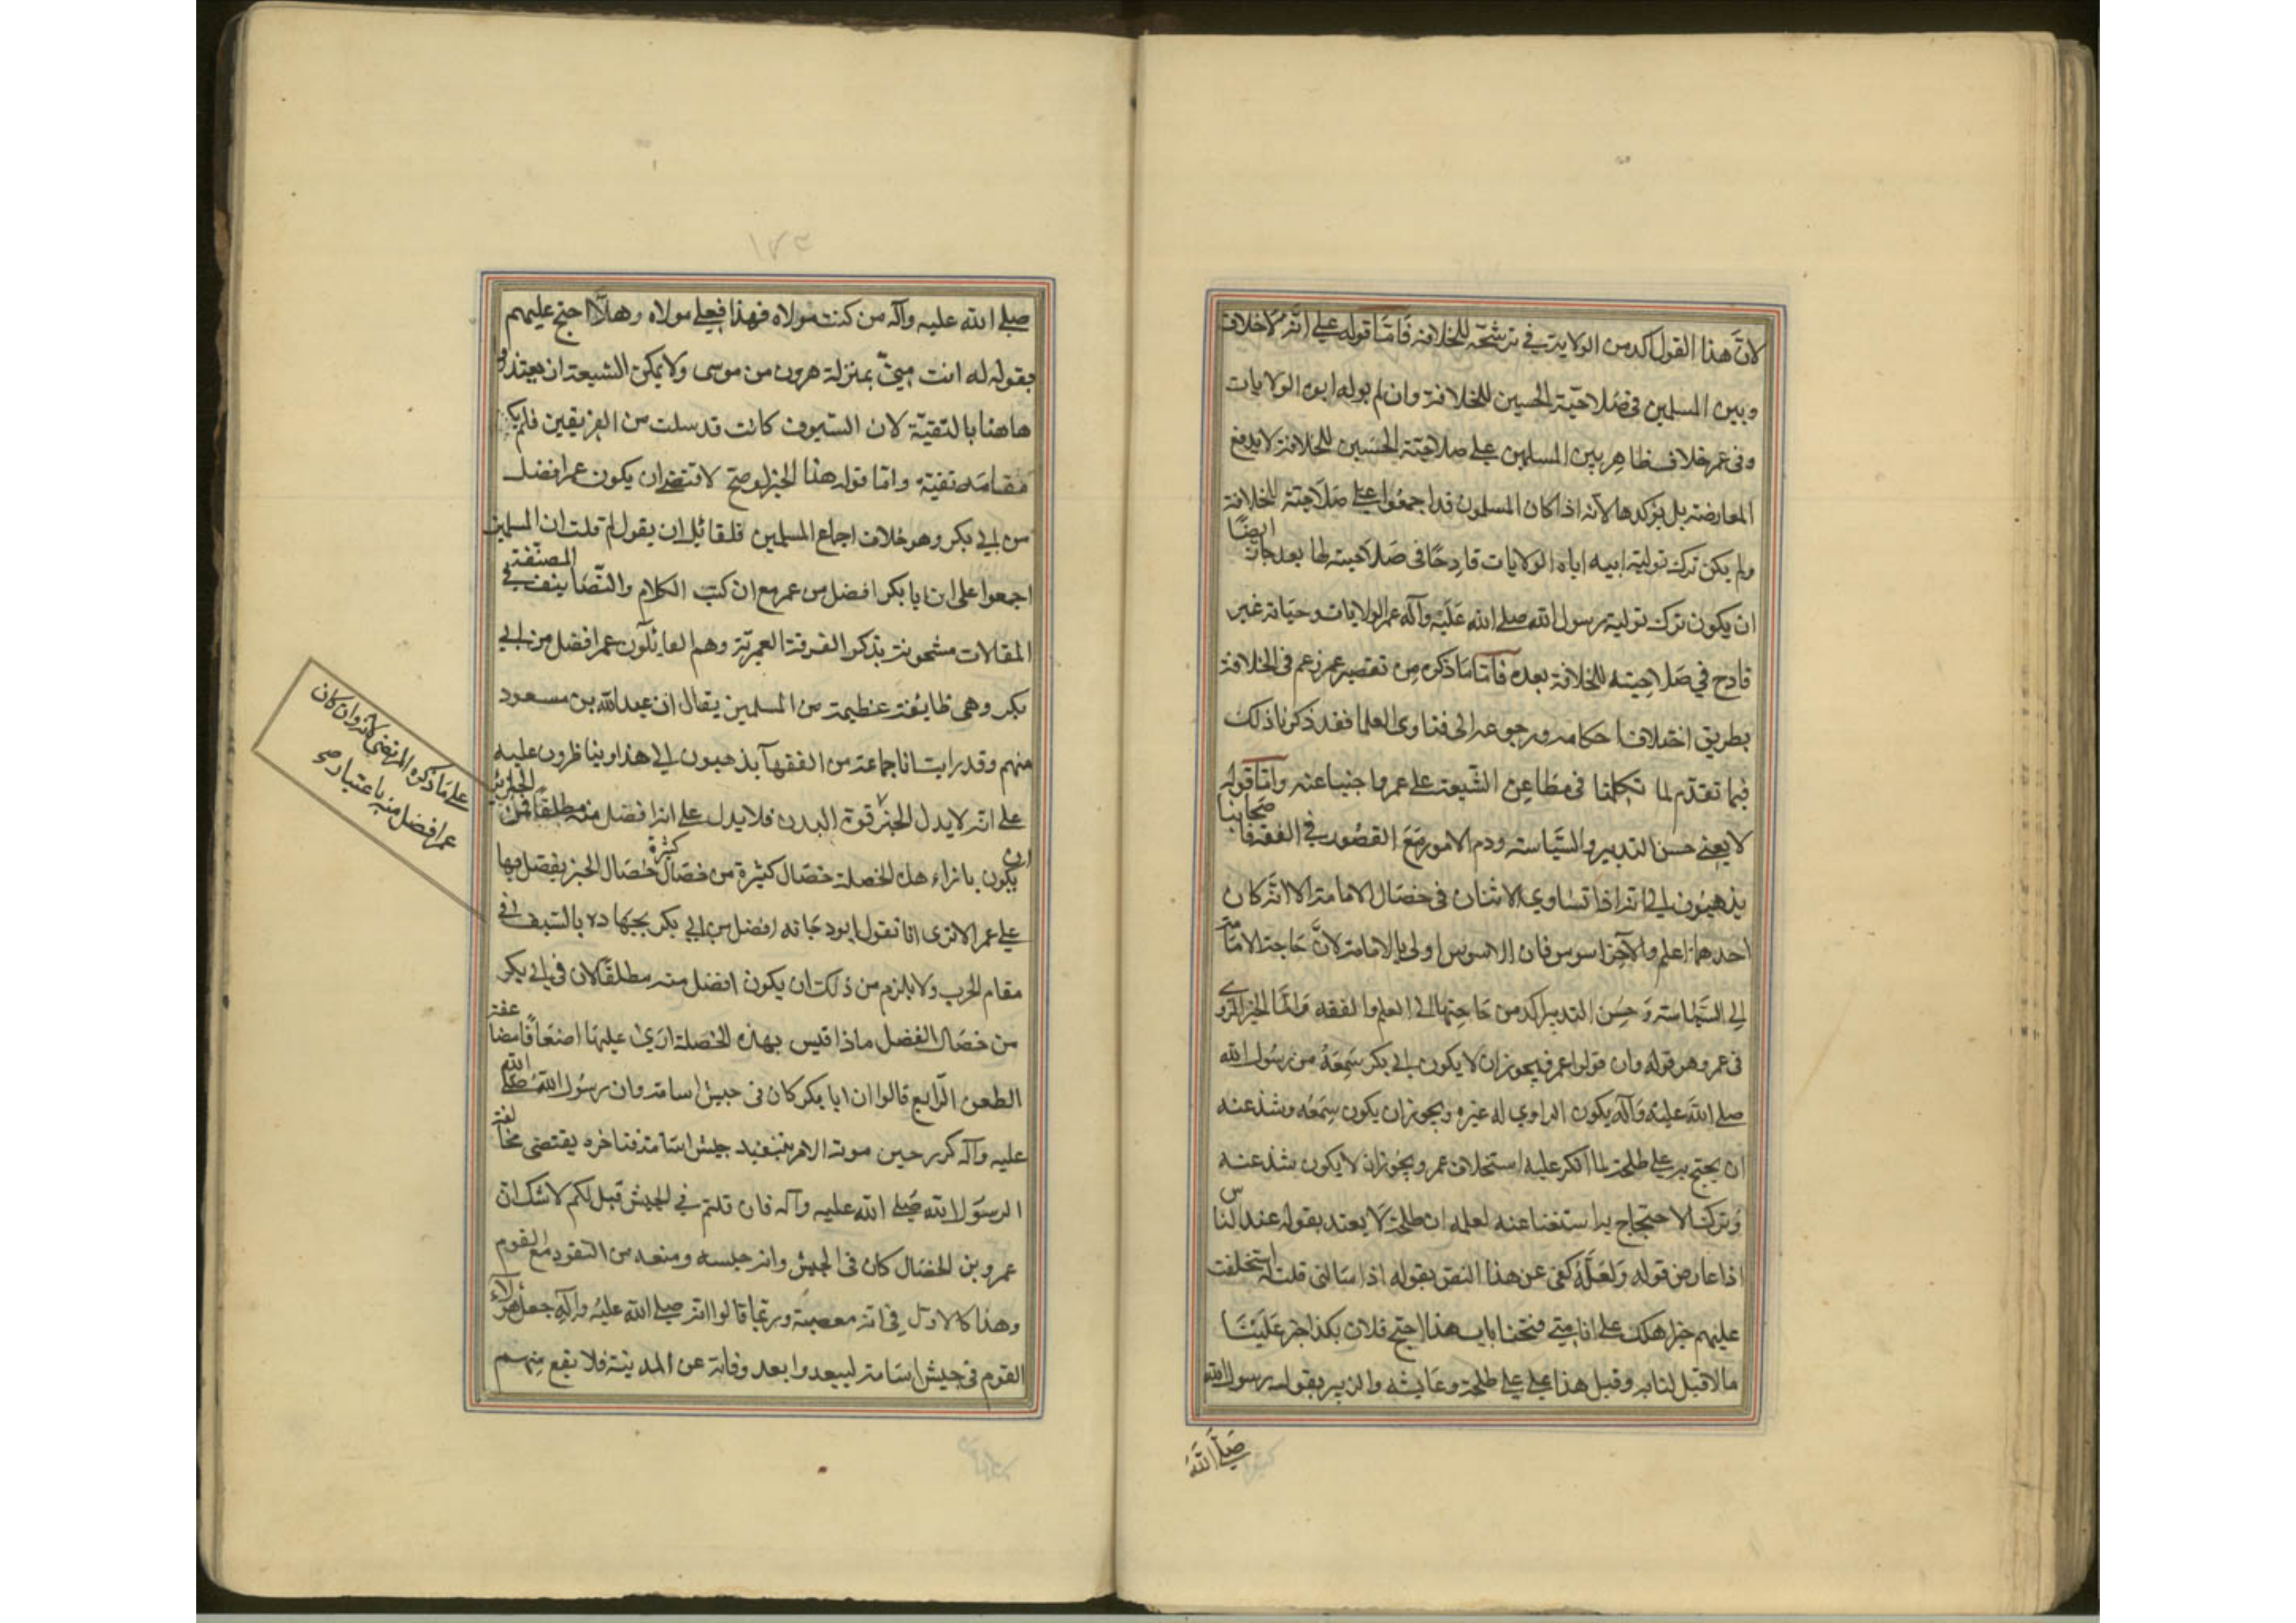 لانّ هذا القول اكد من الولاية في ترشحّه للخلافة فامّا قوله على انه لا خلاف
وبين المسلمين فى صلاحيّة الحسين للخلافة وان لم يوله ابوه الولايات
وفى عمر خلاف ظاهر بين المسلمين على صلاحيّة الحسين للخلافة لا يدفع
المعارضة بل يؤكدها لانّه اذا كان المسلمون قد اجمعوا على صلاحيّة للخلافة
ولم يكن ترك تولية ابيه اياه الولايات قادحًا فى صلاحيته لها بعد جاز ايضًا
ان يكون ترك تولية رسول الله صلى الله عليه وآله عمر الولايات وحياته غير
قادح في صلاحيته للخلافة بعده فامّا ما ذكره من تقصير عمر زعم فى الخلافة
بطريق اختلاف احكامه ورجوعه الى فتاوى العلما فقد ذكرنا ذلك
فيما تقدّم لما تكلمنا فى مطاعن الشّيعة على عمر وا جنبنا عنه وامّا قوله
لا يغنى حسن التدبير والسّياسة ودم الامور مع القصور في الفقه فاصحابنا
يذهبون الى انه اذا تساوى الاثنان فى خصال الامامة الا انّه كان
احدهما اعلم والآخر اسوس فان الاسوس اولى بالامامة لانّ حاجة الامّة
الى السّياسة وحسن التدبير اكد من حاجتها الى العلم والفقه وامّا الخبر المروى
فى عمر وهو قوله وان تولوا عمر فيجوز ان لا يكون ابى بكر سمعه من رسول الله
صلى الله عليه وآله ويكون الراوي له غيره ويجوز ان يكون سمعه وشذ عنه
ان يحتج به على طلحة لما انكر عليه استخلاف عمر ويجوز ان لا يكون شذ عنه
وترك الاحتجاج به استغنا عنه لعلمه ان طلحة لا يعتد بقوله عند الناس
اذا عارض قوله ولعلّه كنى عن هذا النص بقوله اذا سالنى قلت له استخلفت
عليهم خير اهلك على انا متى فتحنا باب هذا احتج فلان بكذا جر علينا
ما لا قبل لنا به وقيل هذا على على طلحة وعايشه والزبير بقول رسول الله
صلّى الله
صلى الله عليه وآله من كنت مولاه فهذا فعلى مولاه وهلاّ احتج عليهم
بقوله له انت منىّ بمنزلة هرون من موسى ولا يمكن الشيعة ان يعتذروا
هاهنا بالتقيّة لان السّيوف كانت قد سلت من الفريقين فلم يكن
مقامه تقية وامّا قوله هذا الخبر لو صح لاقتضى ان يكون عمر افضل
من ابى بكر وهو خلاف اجماع المسلمين فلقائل ان يقول لم قلت ان المسلمين
اجمعوا على ان ابا بكر افضل من عمر مع ان كتب الكلام والتّصانيف المصنّفة في
المقالات مشحونة بذكر الفرقة العمريّة وهم القائلون عمر افضل من ابى
بكر وهى طايفة عظيمة من المسلمين يقال ان عبد الله بن مسعود
منهم وقد رايت انا جماعة من الفقهآ يذهبون الى هذا ويناظرون عليه
على انّه لا يدل الخبر قوة البدن فلا يدل على انه افضل منه مطلقًا فمن الجائز
ان يكون بازاء هذه الخصلة خصال كثيرة من خصال خصال الخير يفضل بها
على عمر الا ترى انا نقول ابو دجانه افضل من ابى بكر بجهاده بالسيف فى
مقام الحرب ولا يلزم من ذلك ان يكون افضل منه مطلقًا لان فى ابى بكر
من خصال الفضل ما اذا قيس بهذه الخصلة اربى عليها اضعافًا مضاعفة
الطعن الرّابع قالوا ان ابا بكر كان فى جيش اسامة وان رسول الله صلى الله
عليه وآله كرر حين موته الامر بتنفيذ جيش اسامة فتاخره يقتضى مخالفة
الرسول الله صلى الله عليه وآله فان قلتم في الجيش قيل لكم لا شك ان
عمرو بن الخصال كان فى الجيش وانه حبسه ومنعه من النفوذ مع القوم
وهذا كالاول فى انه معصية وربما قالوا انه صلى الله عليه وآله جعل هؤلاء
القوم فى جيش اسامة ليبعدوا بعد وفاته عن المدينة فلا يقع منهم
على ما ذكره المرتضى لانه وان كان
عمر افضل منه باعتبار صح
كثيرة
١٧٣